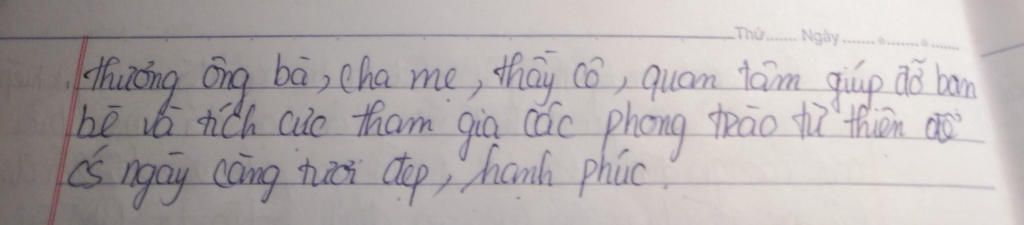 Thứ....... Ngày.......................
thương ông bà, cha mẹ, thầy cô, quan tâm giúp đỡ bạn
bè và tích cực tham gia các phong trào từ thiện để
c/s ngày càng tươi đẹp, hạnh phúc.